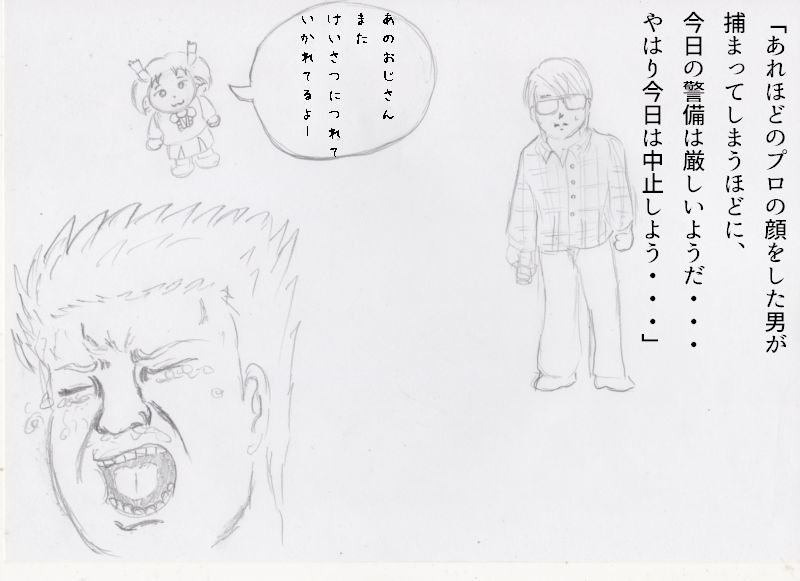 「あれほどのプロの顔をした男が
捕まってしまうほどに、
今日の警備は厳しいようだ・・・
やはり今日は中止しよう・・・」
あのおじさん
また
けいさつにつれて
いかれてるよー